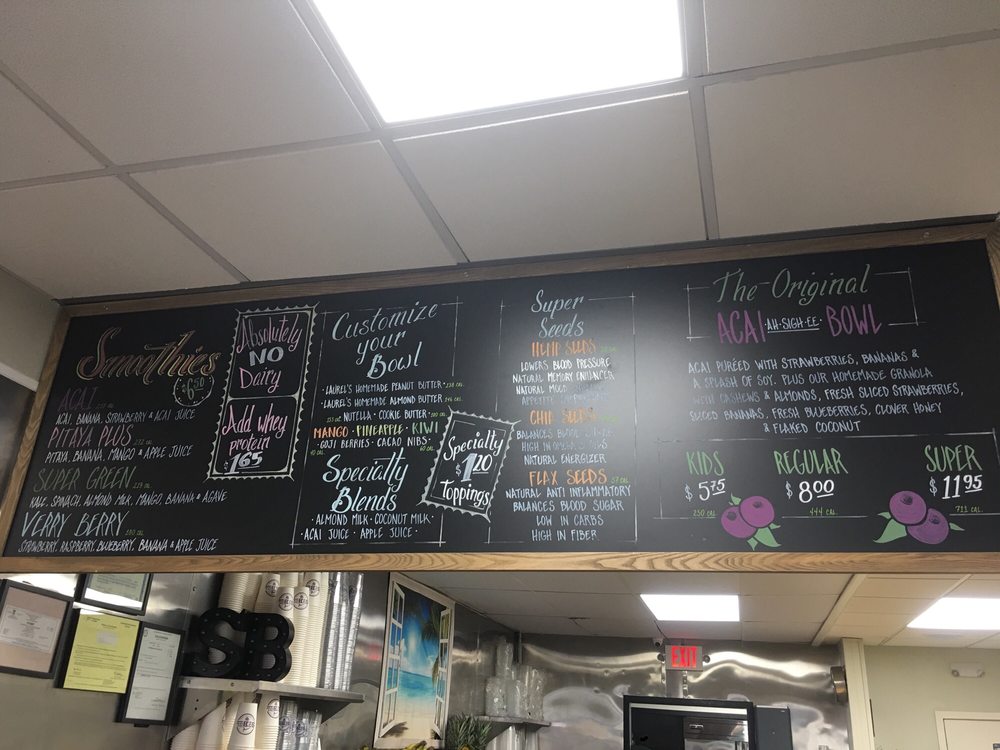 Smoothies
$6.50
ACAI
ACAI, BANANA, STRAWBERRY & ACAI JUICE
PITAYA PLUS
PITAYA, BANANA, MANGO & APPLE JUICE
SUPER GREEN
KALE, SPINACH, ALMOND MILK, MANGO, BANANA & AGAVE
VERRY BERRY
STRAWBERRY, RASPBERRY, BLUEBERRY, BANANA & APPLE JUICE
Absolutely
NO
Dairy
Add whey
protein
$1.65
Customize
your
Bowl
· LAUREL'S HOMEMADE PEANUT BUTTER ·
· LAUREL'S HOMEMADE ALMOND BUTTER ·
NUTELLA · COOKIE BUTTER ·
MANGO · PINEAPPLE · KIWI
· GOJI BERRIES · CACAO NIBS ·
Specialty
Blends
· ALMOND MILK · COCONUT MILK ·
· ACAI JUICE · APPLE JUICE ·
Specialty
$1.20
Toppings
Super
Seeds
HEMP SEEDS
LOWERS BLOOD PRESSURE
NATURAL MEMORY ENHANCER
NATURAL MOOD
APPETITE
CHIA SEEDS
BALANCES BLOOD
HIGH IN OMEGA
NATURAL ENERGIZER
FLAX SEEDS
NATURAL ANTI INFLAMMATORY
BALANCES BLOOD SUGAR
LOW IN CARBS
HIGH IN FIBER
The Original
ACAI ·AH·SIGH·EE· BOWL
ACAI PURÉED WITH STRAWBERRIES, BANANAS &
A SPLASH OF SOY. PLUS OUR HOMEMADE GRANOLA
WITH CASHEWS & ALMONDS, FRESH SLICED STRAWBERRIES,
SLICED BANANAS, FRESH BLUEBERRIES, CLOVER HONEY
& FLAKED COCONUT
KIDS
$5.75
REGULAR
$8.00
444 CAL.
SUPER
$11.95
SB
EXIT